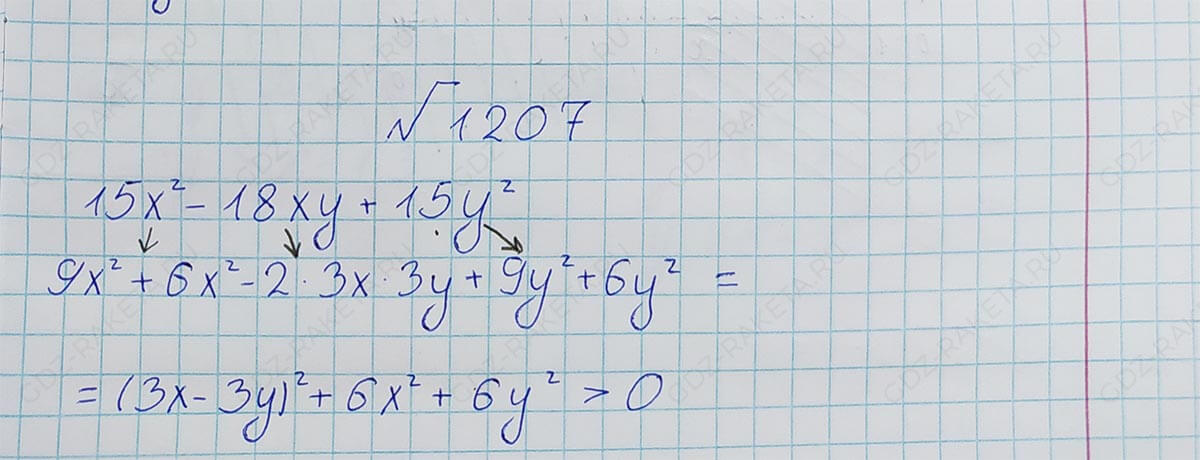 √1207
15x² - 18xy + 15y²
9x² + 6x² - 2 · 3x · 3y + 9y² + 6y² =
= (3x - 3y)² + 6x² + 6y² > 0
GDZ-RAKETA.RU